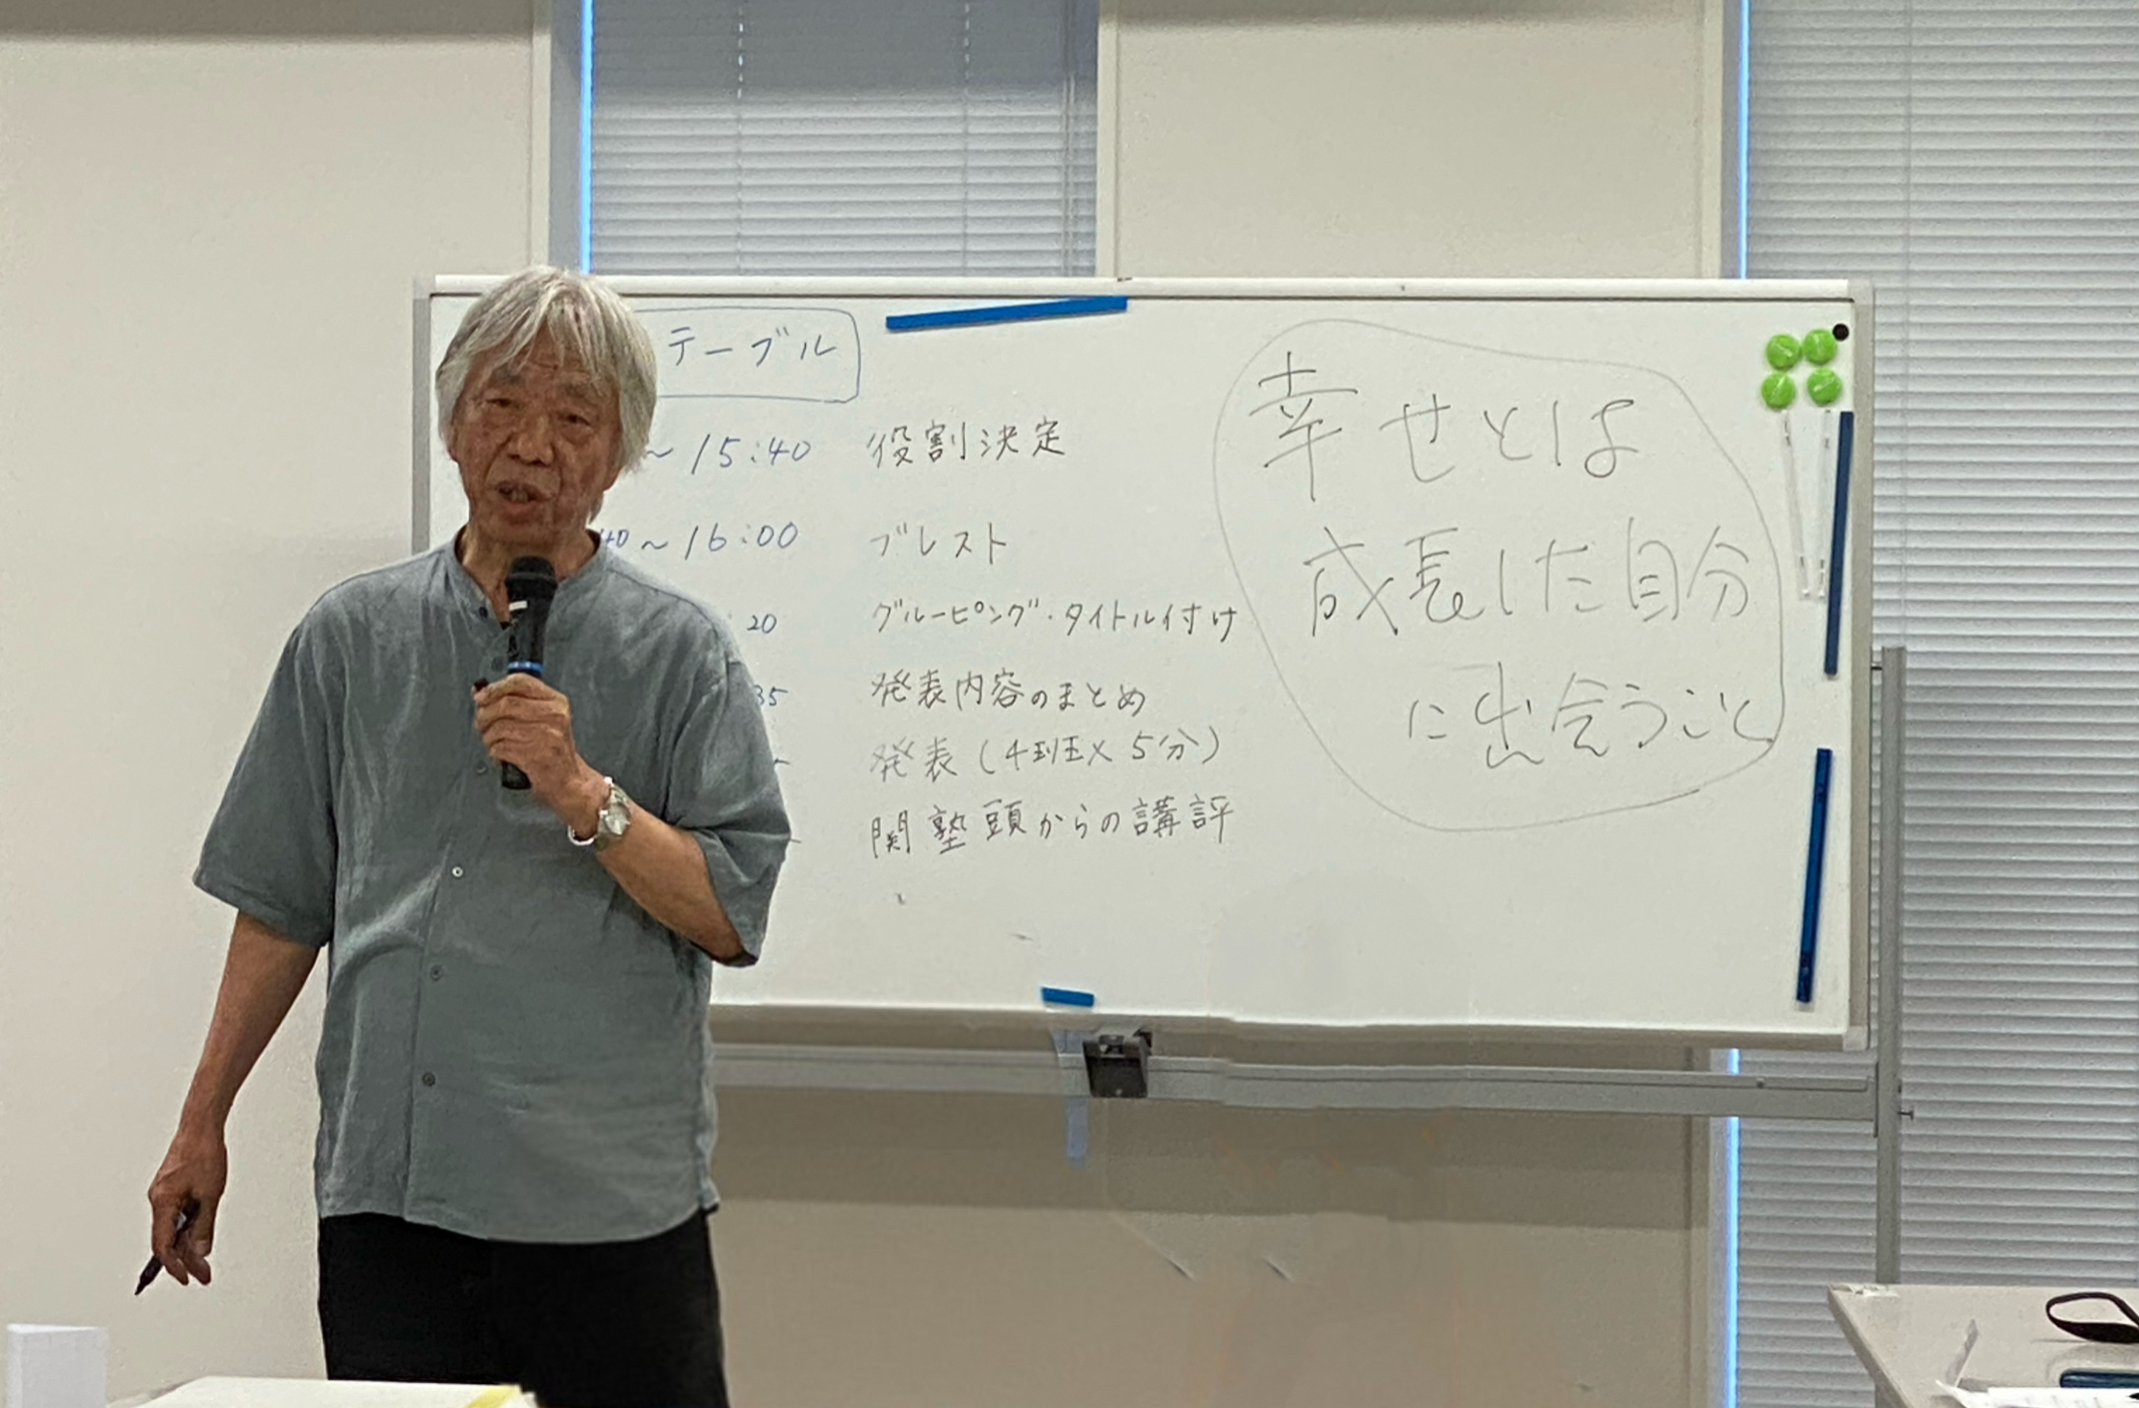 テーブル
～15:40 役割決定
40～16:00 ブレスト
:20 グルーピング・タイトル付け
35 発表内容のまとめ
発表(4班×5分)
関塾頭からの講評
幸せとは
成長した自分
に出会うこと